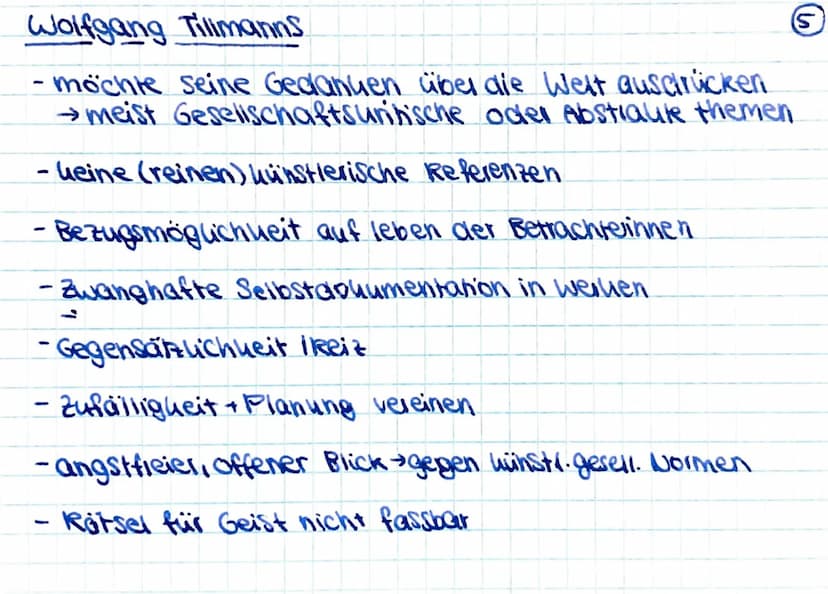 Wolfgang Tillmanns
5
- möchte seine Gedanken über die Welt ausdrücken
→ meist Gesellschaftskritische oder Abstrakte themen
- keine (reinen) künstlerische Referenzen
- Bezugsmöglichkeit auf leben der Betrachterinnen
- Zwanghafte Selbstdokumentation in werken
- Gegensätzlichkeit / Reiz
- Zufälligkeit + Planung vereinen
- angstfreier, offener Blick → gegen künstl. gesell. Normen
- Rätsel für Geist nicht fassbar